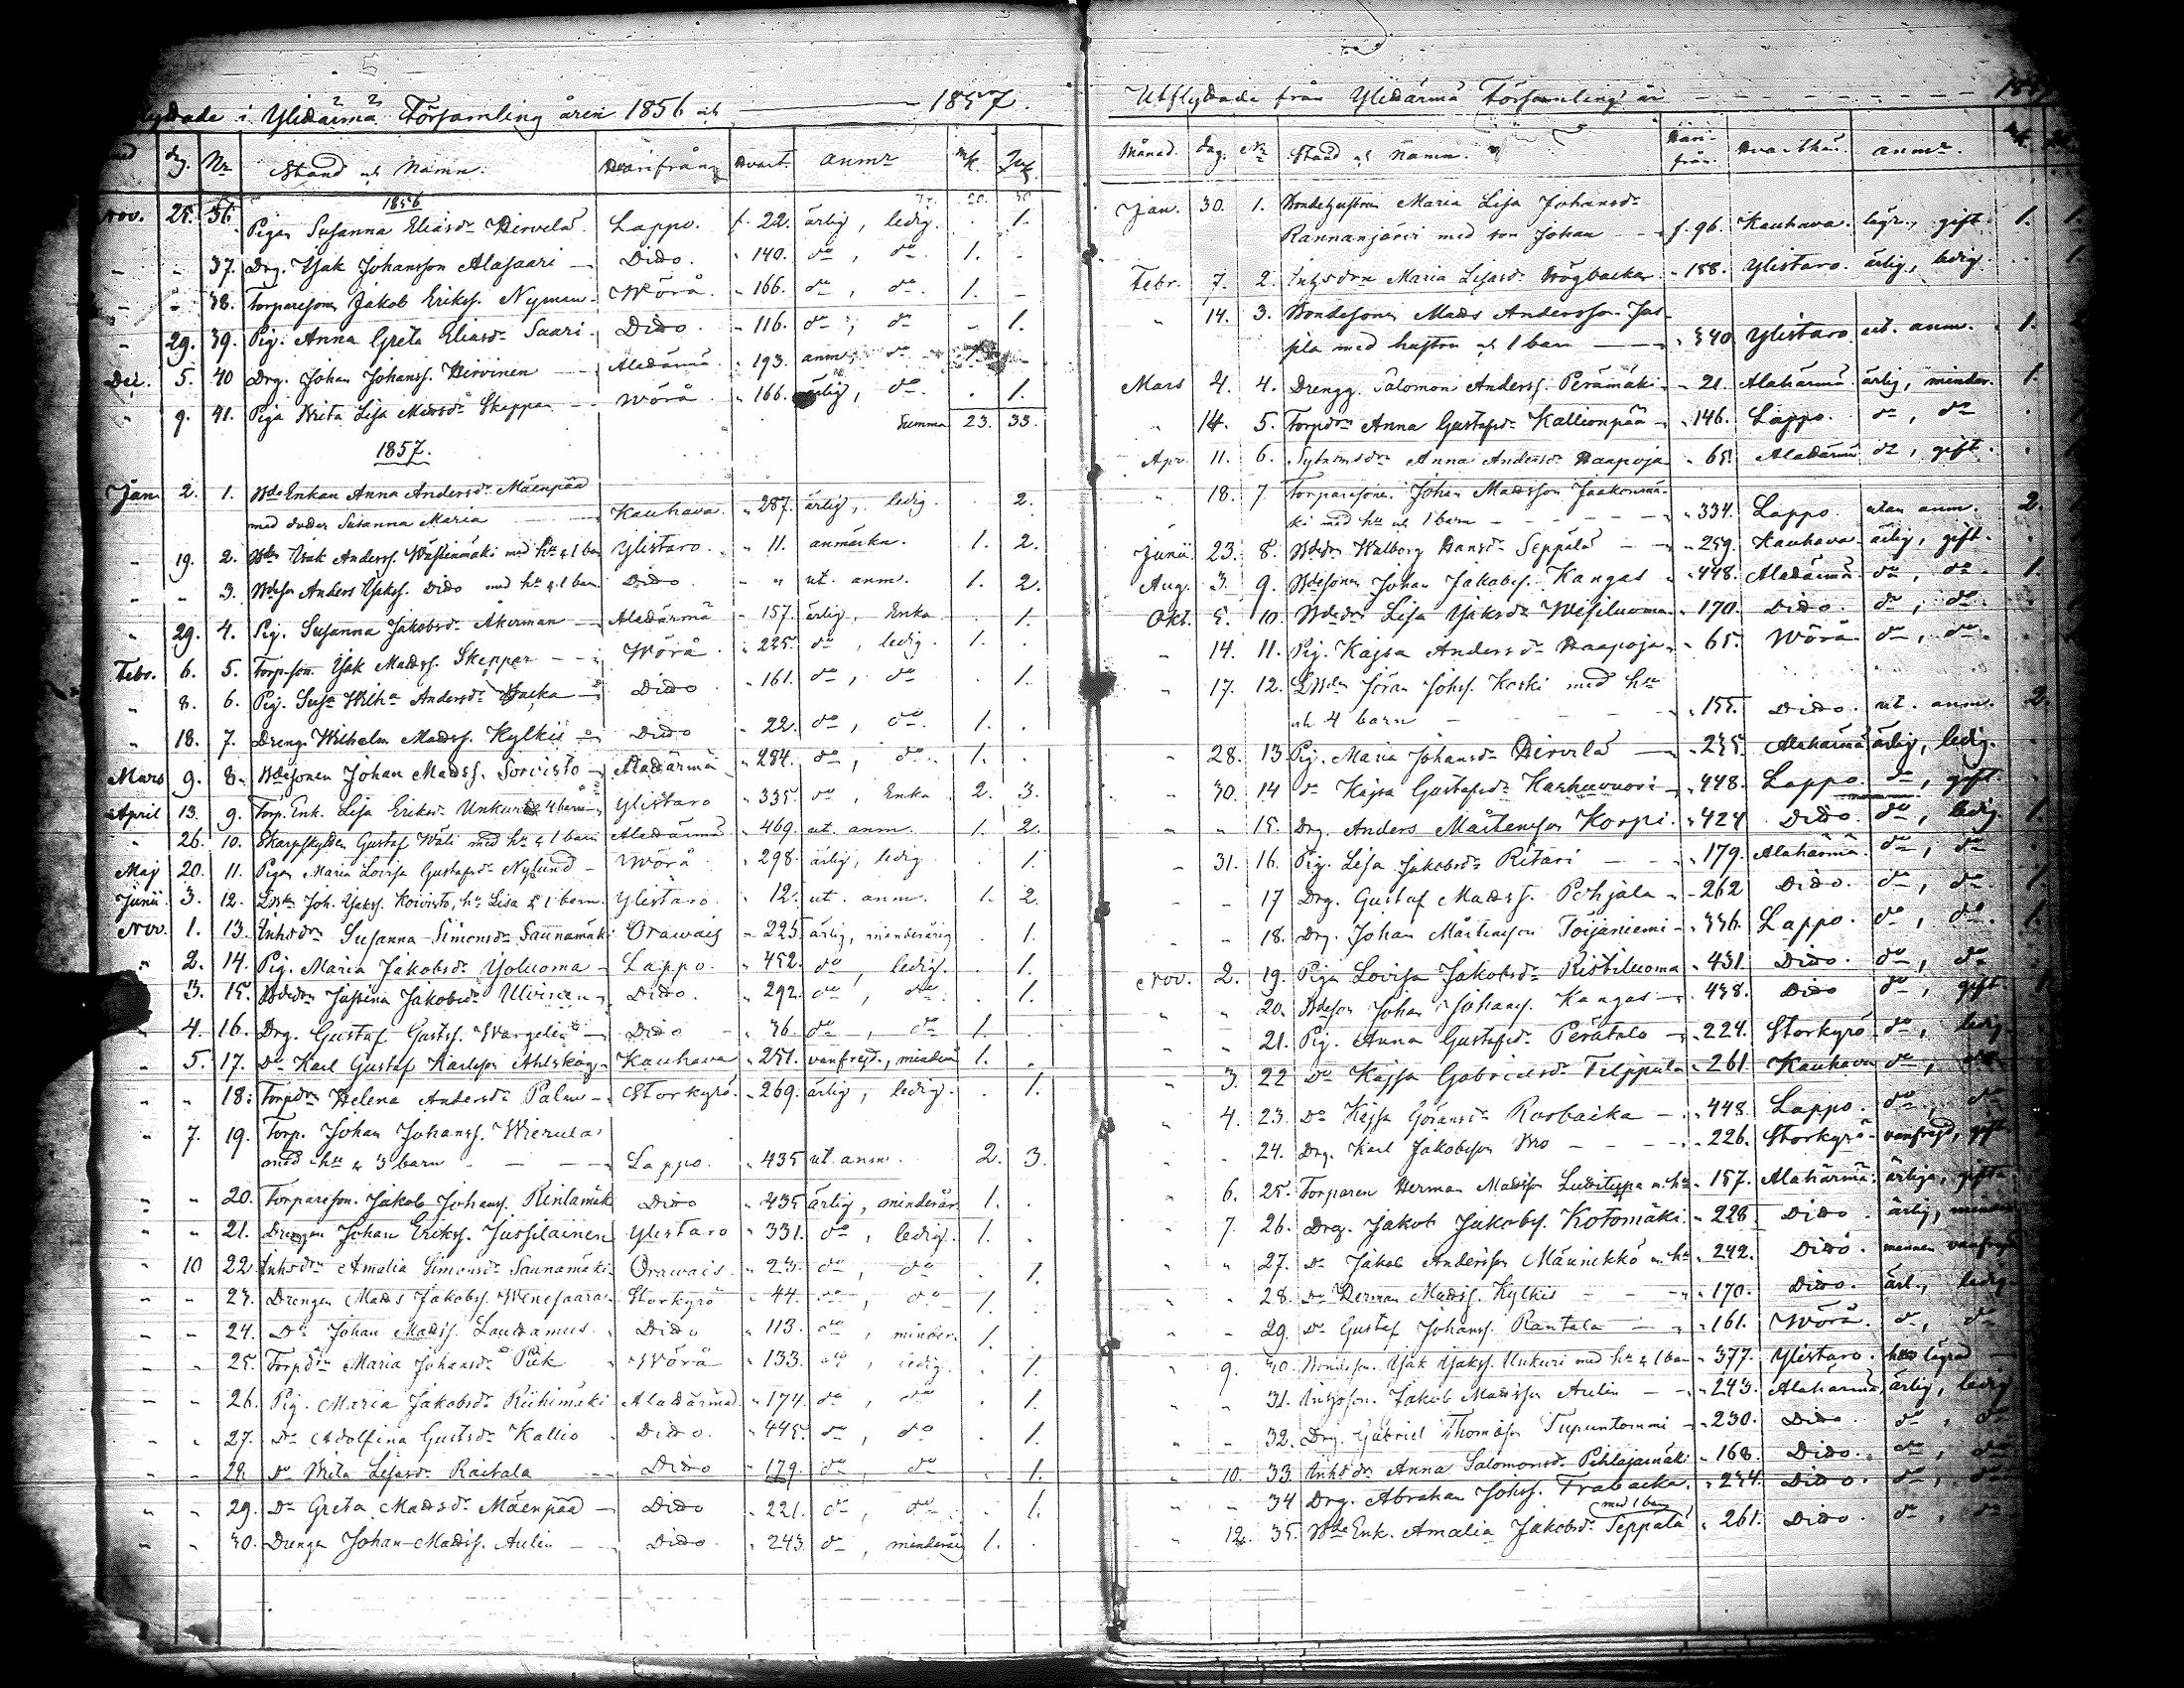 lyttade i Ylihärmä Församling åren 1856 och 1857.
dag. Nr Stånd och Namn. Hvarifrån Hvart. anmr mk. Qvk.
1856
Nov. 25. 36. Pigan Susanna Eliasdr Hirvelä Lappo. f. 22. ärlig, ledig. . 1.
" " 37. Drg. Isak Johansson Alasaari Dido. " 140. do, do. 1. -
" " 38. Torparesonen Jakob Erikss. Nyman Wörå. " 166. do, do. 1. -
" 29. 39. Pig. Anna Greta Eliasdr Saari Dido. " 116. do, do - 1.
Dec. 5. 40 Drg. Johan Johanss. Hirvinen Alahärmä " 193. anm. do
" 9. 41. Piga Brita Lisa Matsdr Skeppar Wörå " 166. ärlig, do. . 1.
Summa 23. 33.
1857.
Jan. 2. 1. Bde Enkan Anna Andersdr Mäenpää
med dotter Susanna Maria Kauhava " 287. ärlig, ledig. 2.
" 19. 2. Bdn Isak Anderss. Wästinmäki med hu & 1 barn Ylistaro. " 11. anmärkn. 1. 2.
" " 3. Bdeson Anders Isakss. Dido med hu & 1 barn Dido " " ut. anm. 1. 2.
" 29. 4. Pig. Susanna Jakobsdr Åkerman Alahärmä " 157. ärlig, Enka . 1.
Febr. 6. 5. Torp.son Isak Matss. Skeppar Wörå " 225. do, ledig. 1. .
" 8. 6. Pig. Susa Wilha Andersdr Backa Dido " 161. do, do . 1.
" 18. 7. Dreng. Wilhelm Matss. Kylkis Dido " 22. do, do. 1. .
Mars 9. 8. Bdesonen Johan Matss. Sorvisto Alahärmä " 284. do, do. 1. .
April 13. 9. Torp. Enk. Lisa Eriksdr Unkuri & 4 barn Ylistaro " 335. do, Enka 2. 3.
" 26. 10. Skarpskytten Gustaf Wäli med hu & 1 barn Alahärmä " 469. ut. anm. 1. 2.
Maj 20. 11. Pigan Maria Lovisa Gustafsdr Nylund Wörå " 298. ärlig, ledig . 1.
Junii 3. 12. Joh. Isakss. Koivisto, hu Lisa & 1 barn Ylistaro " 12. ut. anm. 1. 2.
Nov. 1. 13. Inhsdr Susanna Simonsdr Saunamäki Orawais " 225. ärlig, minderårig . 1.
" 2. 14. Pig. Maria Jakobsdr Yoluoma Lappo. " 452. do, ledig. . 1.
" 3. 15. Bdedr Justina Jakobsdr Ulvinen Dido. " 292. do, do. . 1.
" 4. 16. Drg. Gustaf Gustss. Wargelin Dido " 36. do, do 1. .
" 5. 17. Do Karl Gustaf Karlsson Ahlskog Kauhava " 251. vanfrejd., minderår 1. .
" " 18. Torpdr Helena Andersdr Palm Storkyrö " 269. ärlig, ledig. . 1.
" 7. 19. Torp. Johan Johanss. Wierula
med hu & 3 barn Lappo. " 435 ut. anm. 2. 3.
" " 20. Torpareson. Jakob Johanss. Rintamäk Dido " 435 ärlig, minderår. 1. .
" " 21. Drengen Johan Erikss. Jussilainen Ylistaro " 331. do, ledig. 1. .
" 10 22. Inhsdr Amalia Simonsdr Saunamäki Orawais. " 23. do, do . 1.
" " 23. Drengen Mats Jakobss. Wenesaara Storkyrö " 44. do, do 1. .
" " 24. Do Johan Matss. Lautamus Dido " 113. do, minder. 1. .
" " 25. Torpdr Maria Johansdr Piik Wörå " 133. do, ledig. . 1.
" " 26. Pig. Maria Jakobsdr Riihimäki Alahärmä " 174. do, do . 1.
" " 27. Do Adolfina Gustsdr Kallio Dido. " 445. do, do . 1.
" " 28. Do Brita Lisasdr Raitala Dido " 179. do, do . 1.
" " 29. Do Greta Matsdr Mäenpää Dido " 221. do, do . 1.
" " 30. Drengen Johan Matss. Aulin Dido. " 243. do, minderårig 1. .
Utflyttade från Ylihärmä Församling år
Månad. dag. Nr Stånd och Namn. Häri-från. Hvarthän. anmr. mk.
Jan. 30. 1. Bondehustrun Maria Lisa Johansdr
Rannanjärvi med son Johan f. 96. Kauhava. lägr., gift. 1. 1.
Febr. 7. 2. Inhsdrn Maria Lisasdr Högbacka " 188. Ylistaro. ärlig, ledig. . 1.
" 14. 3. Bondesonen Mats Andersson Jus-
sila med hustru och 1 barn " 340 Ylistaro. ut. anm. 1.
Mars 4. 4. Drengg. Salomon Anderss. Perämäki " 21. Alahärmä ärlig, minder. 1.
" 14. 5. Torpdrn Anna Gustafsdr Kallionpää " 146. Lappo. do, do .
Apr. 11. 6. Sytnmsdrn Anna Andersdr Haapoja " 65. Alahärmä do, gift. .
" 18. 7 Torparesonen Johan Matsson Jaakonmä-
ki med hu och 1 barn " 334. Lappo. utan anm. 2.
Junii 23. 8. Bdedr Walborg Hansdr Seppälä " 259. Kauhava. ärlig, gift. .
Aug. 3. 9. Bdesonen Johan Jakobss. Kangas " 448. Alahärmä do, do. 1.
Okt. 5. 10. Bdedr Lisa Isaksdr Wesiluoma " 170. Dido. do, do. .
" 14. 11. Pig. Kajsa Andersdr Haapoja " 65. Wörå do, do. .
" 17. 12. Jöran Johss. Koski med hu
och 4 barn " 155. Dido. ut. anm. 2.
" 28. 13 Pig. Maria Johansdr Hirvelä " 235. Alahärmä ärlig, ledig. .
" 30. 14 do Kajsa Gustafsdr Harhavuori " 448. Lappo. do, gift. .
" " 15. Drg. Anders Mårtensson Korpi " 424 Dido. do, ledig. 1.
" 31. 16. Pig. Lisa Jakobsdr Ritari " 179. Alahärmä do, do .
" " 17 Drg. Gustaf Matss. Pohjala " 262 Dido. do, do. 1.
" " 18. Drg. Johan Mårtensson Töijäniemi " 336. Lappo. do, do. 1.
Nov. 2. 19. Piga Lovisa Jakobsdr Ristiluoma " 431. Dido. do, do
" " 20. Bdeson Johan Johanss. Kangas " 438. Dido do, gift.
" " 21. Pig. Anna Gustafsdr Perätalo " 224. Storkyrö do, ledig
" 3. 22 Do Kajsa Gabrielsdr Filppula " 261. Kauhava do, do
" 4. 23. Do Kajsa Göransdr Rosbacka " 448. Lappo. do, do
" " 24. Drg. Karl Jakobsson Bro " 226. Storkyrö vanfrejd, gift
" 6. 25. Torparen Herman Matsson Luhtispa m. hu " 157. Alahärmä ärliga, gifta
" 7. 26. Drg. Jakob Jakobss. Kotomäki " 228 Dido. ärlig, minder
" " 27. Do Jakob Andersson Männikkö m. hu " 242. Dido. mannen vanfrejd
" " 28. Do Herman Matss. Kylkis " 170. Dido. ärl., ledig
" " 29. Do Gustaf Johanss. Rantala " 161. Wörå. do, do
" 9. 30. Bondeson. Isak Isakss. Unkuri med hu & 1 barn " 377. Ylistaro. hu lägrad
" " 31. Inhsson. Jakob Matsson Aulin " 243. Alahärmä ärlig, ledig
" " 32. Drg. Gabriel Thomasson Tupuntommi " 230. Dido. do, do
" 10. 33. Inhsdr Anna Salomonsdr Pihlajamäki " 168. Dido. do, do
" " 34 Drg. Abraham Johss. Frabacka " 234. Dido. do, do
" 12. 35. Bde Enk. Amalia Jakobsdr Seppälä med 1 barn " 261. Dido. do, do